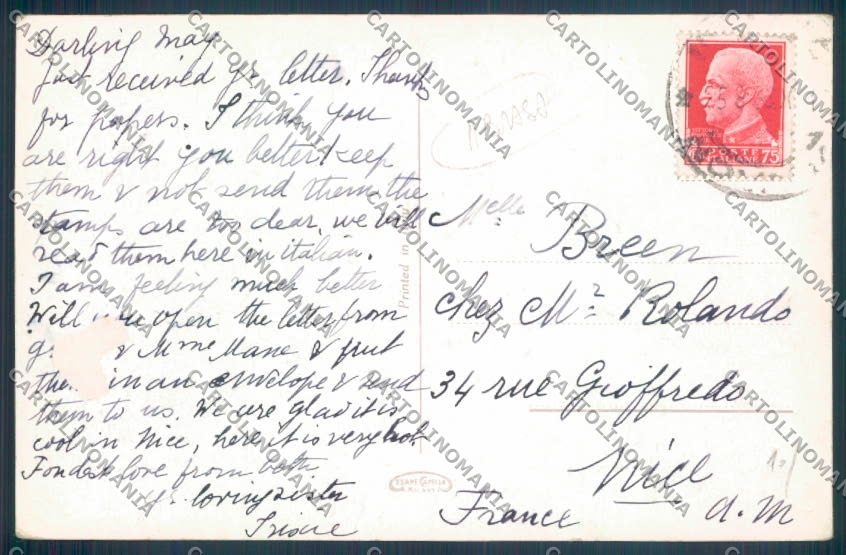 Darling May
Just received yr. letter. Thanks
for papers. I think you
are right you better keep
them & not send them, the
stamps are too dear, we will
read them here in italian.
I am feeling much better
Will you open the letter from
& Mme Mane & put
in an envelope & send
them to us. We are glad it is
cool in Nice, here it is very hot.
Fondest love from both
yr. loving sister
Melle Breen
chez Mr. Rolando
34 rue Gioffredo
Nice
France A.M
Printed in
POSTE
ITALIANE 75
CARTOLINOMANIA